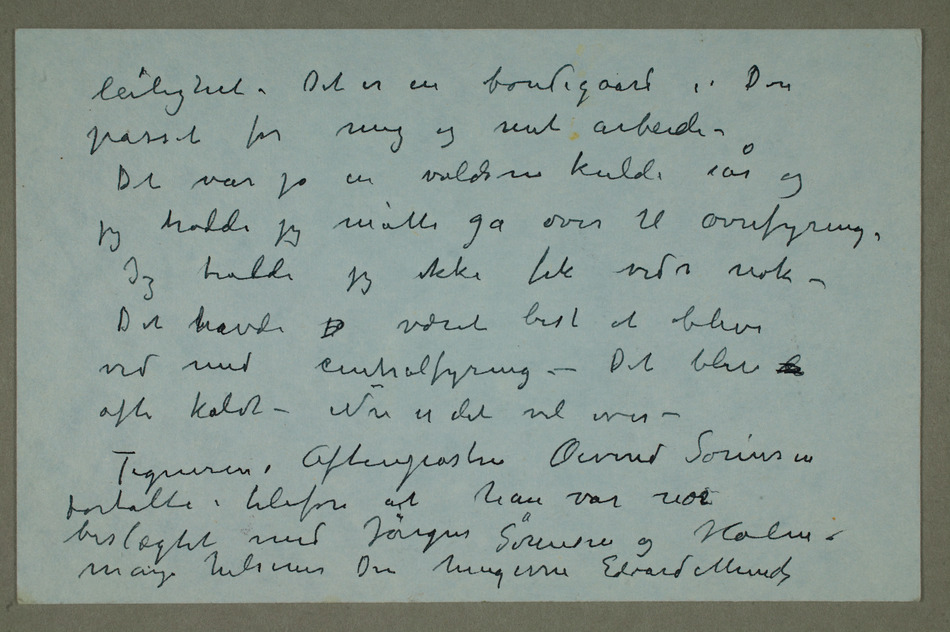 leilighet. Det er en bondegaard i. Den
passet for mig og mit arbeide –
Det var jo en voldsom kulde iår og
jeg trodde jeg måtte gå over til ovnsfyring.
Jeg trodde jeg ikke fik ved nok –
Det havde været best at blive
ved med centralfyring – Det blev
ofte koldt – Nu er det vel over –
Tegneren i Aftenposten Øivind Sørensen
fortalte i telefon at han var nær
beslægtet med Jörgen Sörensen og Holm.
mange hilsener Din hengivne Edvard Munch